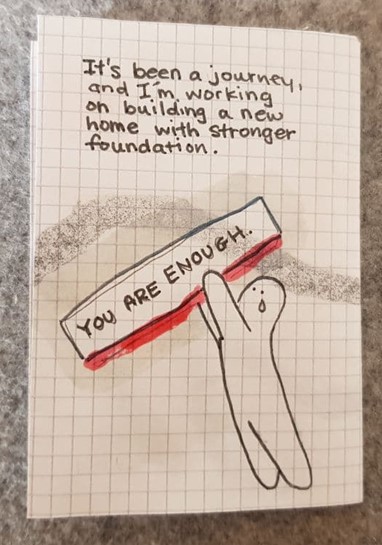 It's been a journey,
and I'm working
on building a new
home with stronger
foundation.
YOU ARE ENOUGH.